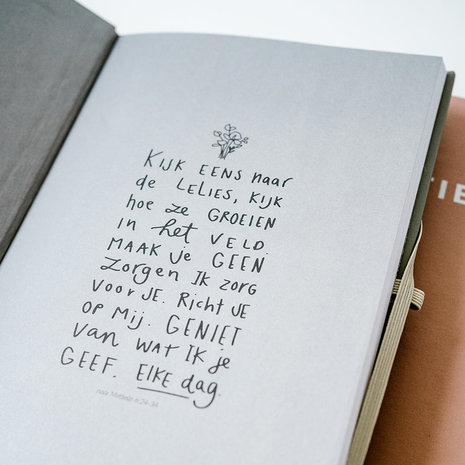 KIJK EENS naar
de LELIES, KIJK
hoe ze GROEIEN
IN het VELD.
MAAK JE GEEN
Zorgen IK zorg
voor JE. Richt JE
OP MIJ. GENIET
van wat IK je
GEEF. ELKE dag.
naar Matteüs 6:24-34
TIE